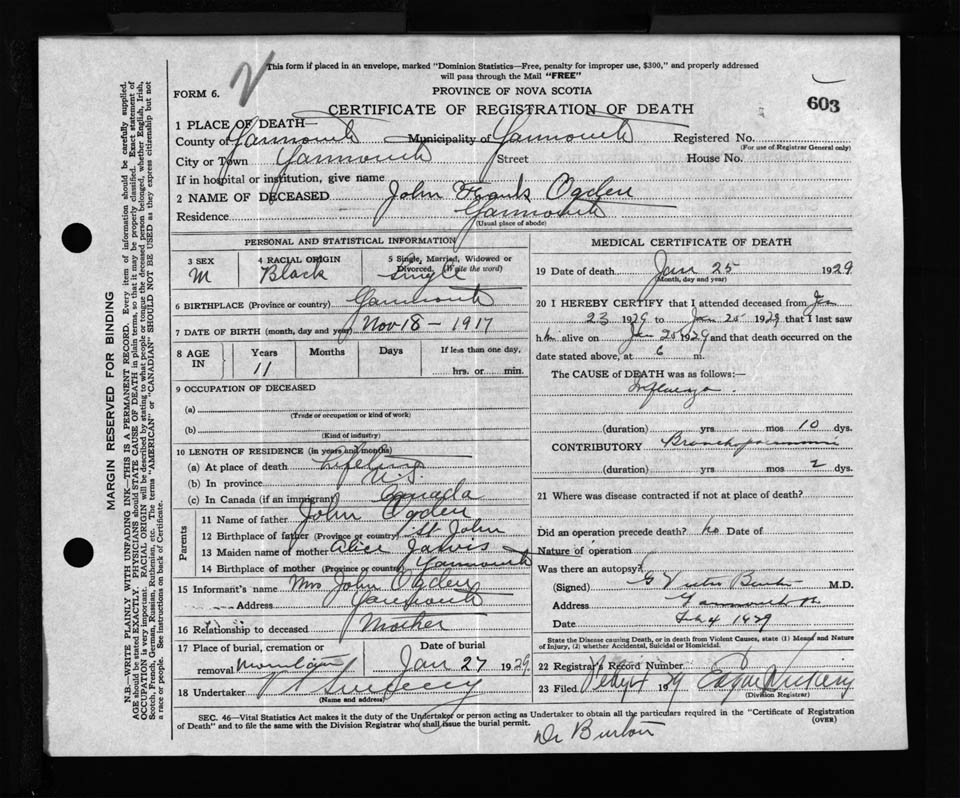 This form if placed in an envelope, marked "Dominion Statistics—Free, penalty for improper use, $300," and properly addressed
will pass through the Mail "FREE"
PROVINCE OF NOVA SCOTIA
FORM 6.
CERTIFICATE OF REGISTRATION OF DEATH
603
1 PLACE OF DEATH—
County of Yarmouth Municipality of Yarmouth Registered No.
(For use of Registrar General only)
City or Town Yarmouth Street House No.
If in hospital or institution, give name
2 NAME OF DECEASED John Frank Ogden
Residence Yarmouth
(Usual place of abode)
PERSONAL AND STATISTICAL INFORMATION
3 SEX M
4 RACIAL ORIGIN Black
5 Single, Married, Widowed or Divorced. (Write the word) Single
6 BIRTHPLACE (Province or country) Yarmouth
7 DATE OF BIRTH (month, day and year) Nov 18 – 1917
8 AGE IN Years Months Days If less than one day,
11 hrs. or min.
9 OCCUPATION OF DECEASED
(a)
(Trade or occupation or kind of work)
(b)
(Kind of industry)
10 LENGTH OF RESIDENCE (in years and months)
(a) At place of death Lifetime
(b) In province N.S.
(c) In Canada (if an immigrant) Canada
Parents
11 Name of father John Ogden
12 Birthplace of father (Province or country) St John
13 Maiden name of mother Alice Jarvis
14 Birthplace of mother (Province or country) Yarmouth
15 Informant's name Mrs John Ogden
Address Yarmouth
16 Relationship to deceased Mother
17 Place of burial, cremation or removal Date of burial
Jan 27 1929.
18 Undertaker
(Name and address)
MEDICAL CERTIFICATE OF DEATH
19 Date of death Jan 25 1929
(Month, day and year)
20 I HEREBY CERTIFY that I attended deceased from Jan
23 1929 to Jan 25 1929 that I last saw
him alive on Jan 25 1929 and that death occurred on the
date stated above, at 6 m.
The CAUSE of DEATH was as follows:
Influenza
(duration) yrs mos 10 dys.
CONTRIBUTORY Bronchopneumonia
(duration) yrs mos 2 dys.
21 Where was disease contracted if not at place of death?
Did an operation precede death? no Date of
Nature of operation
Was there an autopsy?
(Signed) G Victor Burton M.D.
Address Yarmouth
Date Feb 4 1929
State the Disease causing Death, or in death from Violent Causes, state (1) Means and Nature
of Injury, (2) whether Accidental, Suicidal or Homicidal.
22 Registrar's Record Number
23 Filed 1929
(Division Registrar)
SEC. 46—Vital Statistics Act makes it the duty of the Undertaker or person acting as Undertaker to obtain all the particulars required in the "Certificate of Registration
of Death" and to file the same with the Division Registrar who shall issue the burial permit.
(OVER)
Dr Burton
MARGIN RESERVED FOR BINDING
N.B.—WRITE PLAINLY WITH UNFADING INK—THIS IS A PERMANENT RECORD. Every item of information should be carefully supplied.
AGE should be stated EXACTLY. PHYSICIANS should STATE CAUSE OF DEATH in plain terms, so that it may be properly classified. Exact statement of
OCCUPATION is very important. RACIAL ORIGIN will be described by stating to what people or tongue the deceased person belonged, whether English, Irish,
Scotch, French, German, Russian, Ruthenian, etc. The terms "AMERICAN" or "CANADIAN" SHOULD NOT BE USED as they express citizenship but not
a race or people. See instructions on back of Certificate.